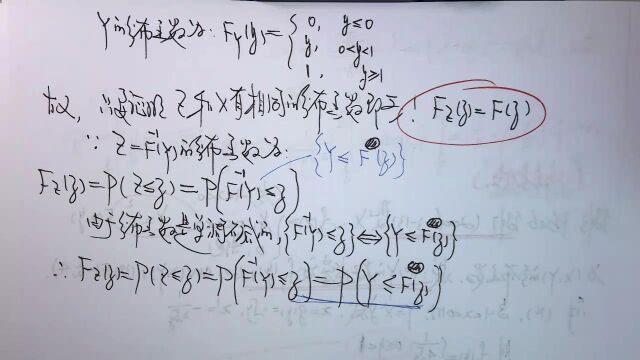 Y的分布函数为: F_Y(y)= { 0, y≤0
y, 0<y<1
1, y≥1
故, 只需证明 Z和X有相同的分布函数即可! F_Z(z)=F(z)
∵ Z=F⁻¹(Y)的分布函数为: {Y≤F(z)}
F_Z(z)=P(Z≤z)=P(F⁻¹(Y)≤z)
由于分布函数是单调递减的, {F⁻¹(Y)≤z}⇔{Y≤F(z)}
∴ F_Z(z)=P(Z≤z)=P(F⁻¹(Y)≤z)=P(Y≤F(z))